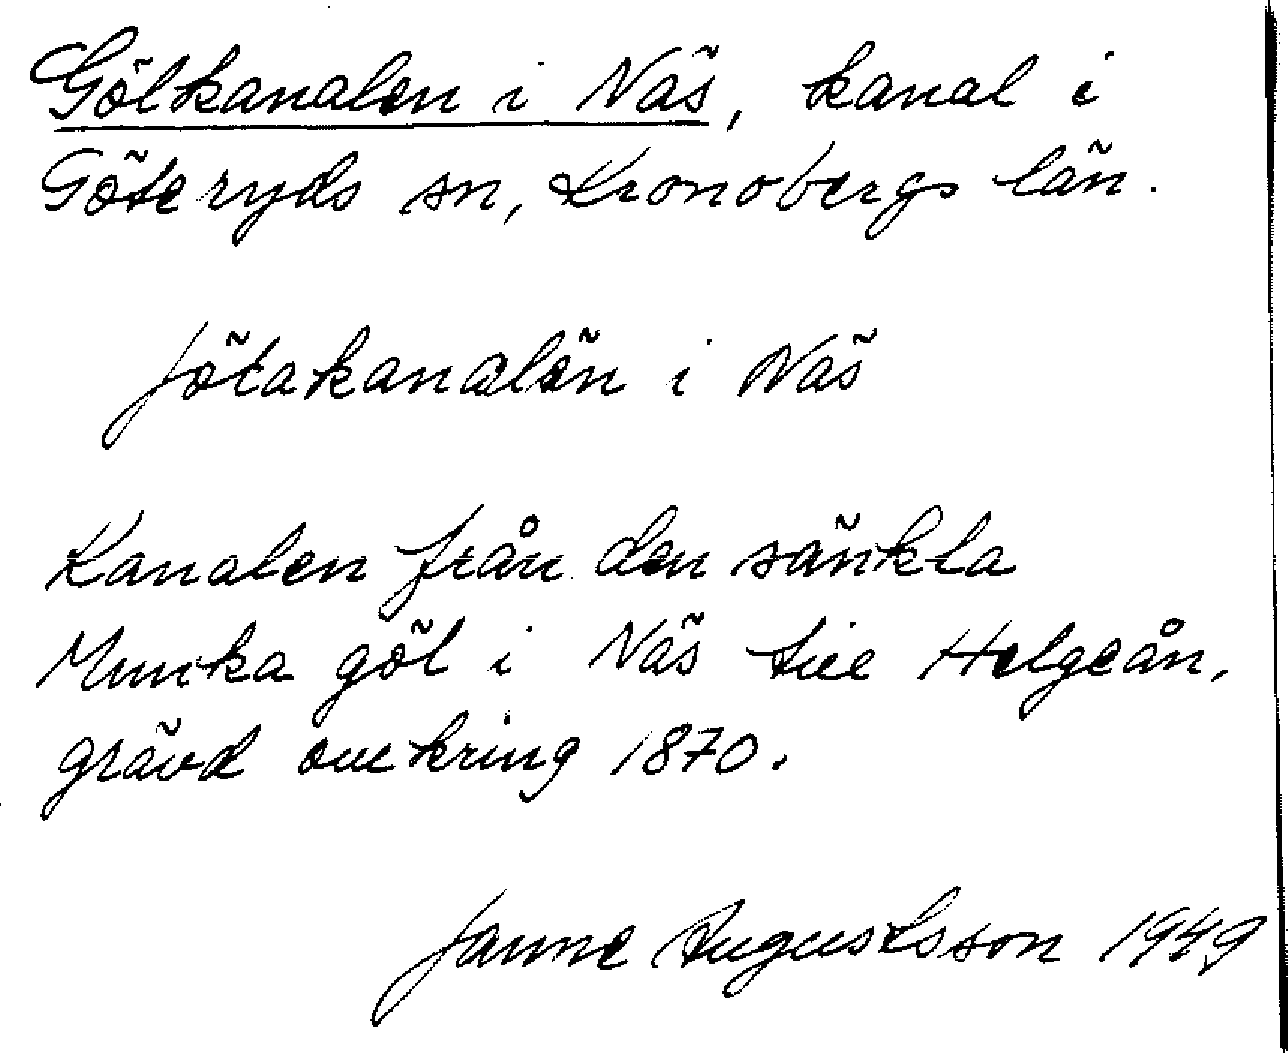 Gölkanalen i Näs, kanal i
Göteryds sn, Kronobergs län.
Jötakanalän i Näs
Kanalen från den sänkta
Munka göl i Näs till Helgeån,
grävd omkring 1870.
Janne Augustsson 1949